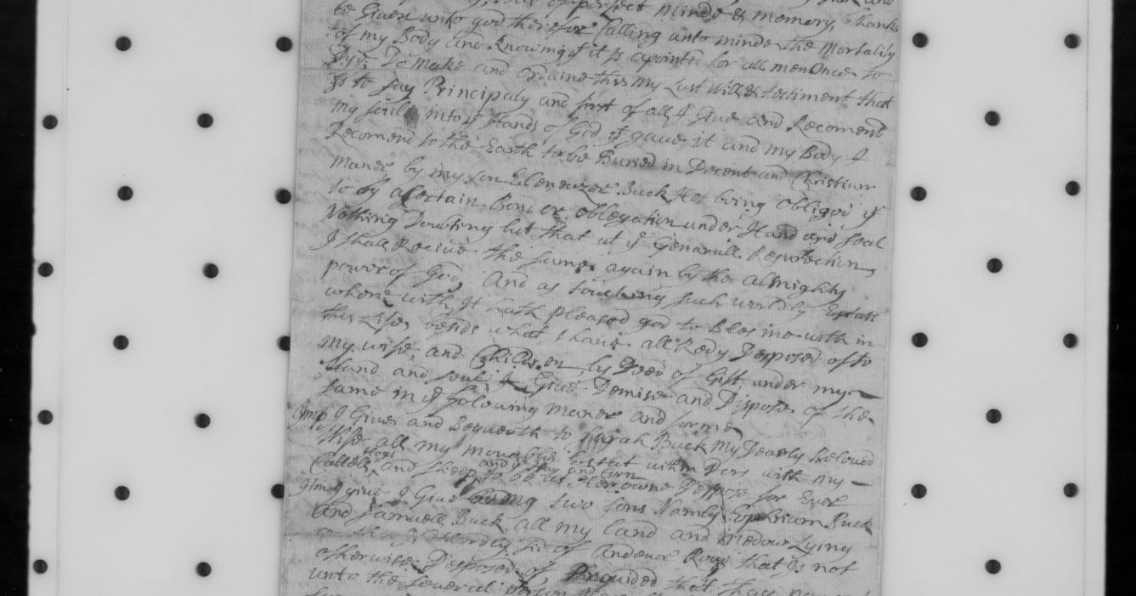 of perfect minde & memory, Thanks
to Given unto god therefor Calling unto minde the Mortality
of my Body and Knowing it is apointed for all men Once to
Dye Do Make and Ordaine this my Last Will & testiment that
Is to Say Principaly and first of all I Give and Recomend
my soul into ye Hands of God yt gave it and my Body I
Recomend to the Earth to be Buried in Decent and Christian
Maner by my son Ebenezer Buck He being obliged
to by a Certain Bond or obligation under Hand and seal
Nothing Doubting but that at ye Generall Resurection
I shall Receive the same again by the almighty
power of God And as touching such worldly Estate
whare with It hath pleased god to Bles me with in
this Life beside what I have all Redy Disposed of to
my wife and Children by Deed of Gift under my
Hand and seal I Give Demise and Dispose of the
same in ye folowing maner and forme
I Give and Bequeath to Sarah Buck My Dearly Beloved
Wife all my movable with Dors with my
and ye Hay and corn
Cattell and sheep to be at Dispose for Ever
give I Give two sons Namly Ephriam Buck
and Samuell Buck all my land and medow Lying
on the sid of Andover Road that Is not
otherwise Disposed of, Provided that they
unto the several